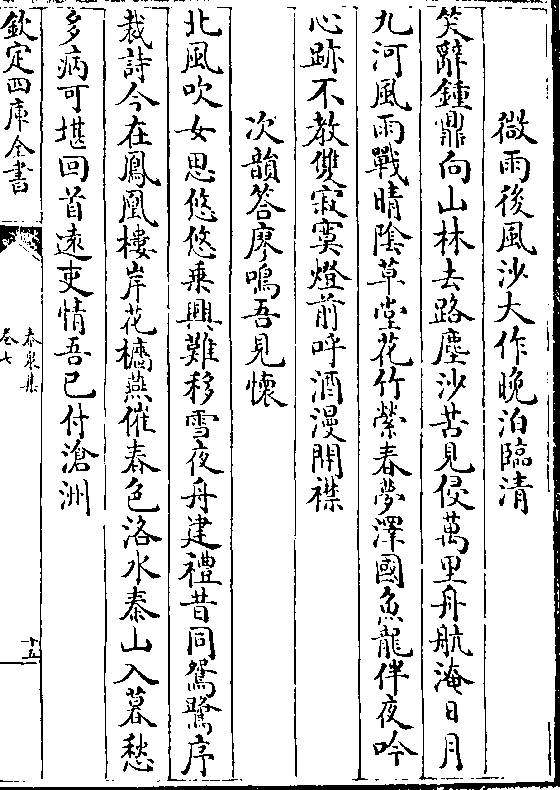 微雨後風沙大作晚泊臨清
笑辭鍾鼎向山林去路塵沙苦見侵萬里舟航淹日月
九河風雨戰晴陰草堂花竹縈春夢澤國魚龍伴夜吟
心跡不教雙寂寞燈前呼酒漫開襟
次韻答廖鳴吾見懷
北風吹女思悠悠乗興難移雪夜舟建禮昔同鴛鷺序
裁詩今在鳳凰樓岸花檣燕催春色洛水泰山入暮愁
多病可堪回首遠吏情吾已付滄洲
欽定四庫全書
泰泉集
卷七
十五